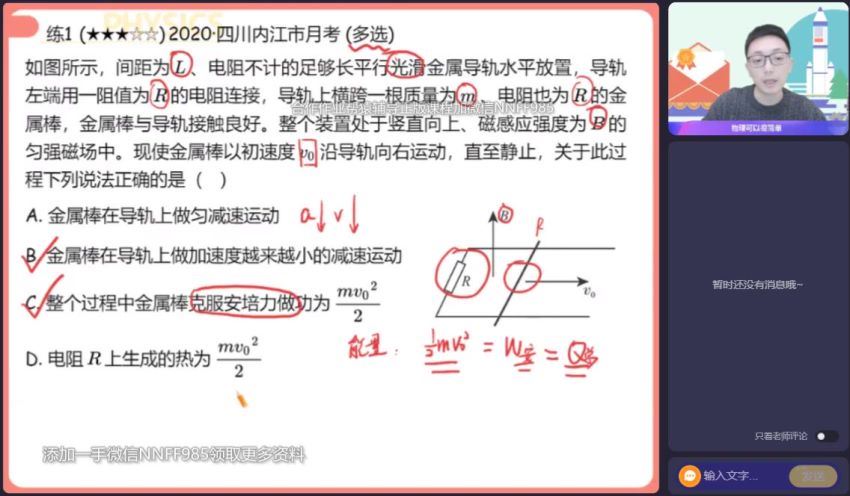 PHYSICS
练1 (★★★☆☆) 2020·四川内江市月考 (多选)
如图所示，间距为 L、电阻不计的足够长平行光滑金属导轨水平放置，导轨
左端用一阻值为 R 的电阻连接，导轨上横跨一根质量为 m、电阻也为 R 的金
属棒，金属棒与导轨接触良好。整个装置处于竖直向上、磁感应强度为 B 的
匀强磁场中。现使金属棒以初速度 v₀ 沿导轨向右运动，直至静止，关于此过
程下列说法正确的是（ ）
A. 金属棒在导轨上做匀减速运动 a↓ v↓
B. 金属棒在导轨上做加速度越来越小的减速运动
C. 整个过程中金属棒克服安培力做功为 mv₀²/2
D. 电阻 R 上生成的热为 mv₀²/2
B
R
R
v₀
能量： ½mv₀² = W安 = Q总
添加一手微信NNFF985领取更多资料
物理可以很简单
暂时还没有消息哦~
只看老师评论
输入文字...
发送